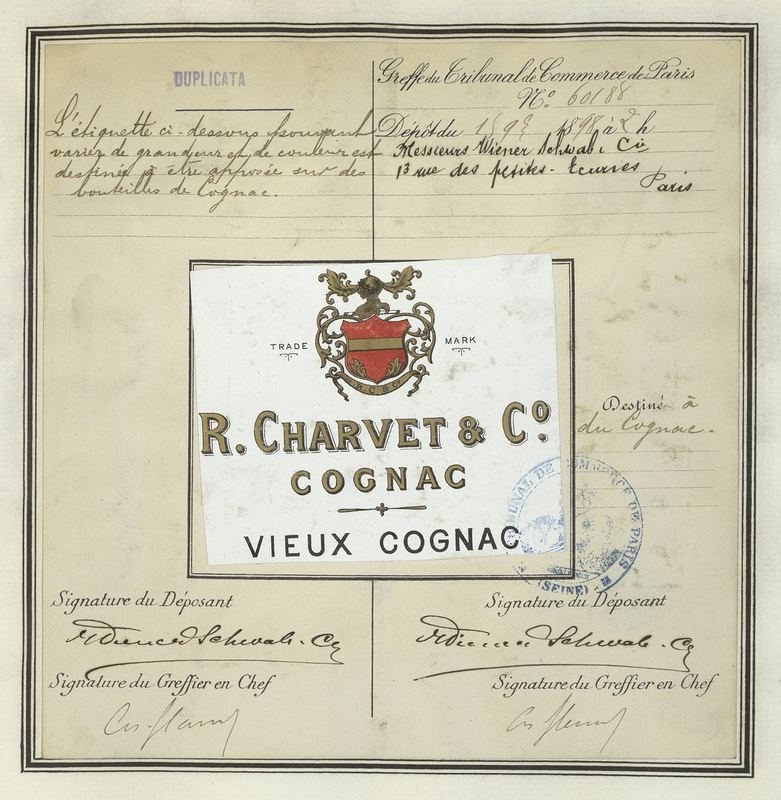 DUPLICATA
L'étiquette ci-dessous pouvant
varier de grandeur et de couleur est
destinée à être apposée sur des
bouteilles de Cognac.
Greffe du Tribunal de Commerce de Paris
No. 60188
Dépôt du 1898 à 2 h
Messieurs Wiener Schwab & Cie
13 rue des petites-Ecuries
Paris
TRADE MARK
R. C & Co
R. CHARVET & Co.
COGNAC
VIEUX COGNAC
Destiné à
du Cognac.
TRIBUNAL DE COMMERCE DE PARIS
(SEINE)
Signature du Déposant
Wiener Schwab & Cie
Signature du Greffier en Chef
Signature du Déposant
Wiener Schwab & Cie
Signature du Greffier en Chef